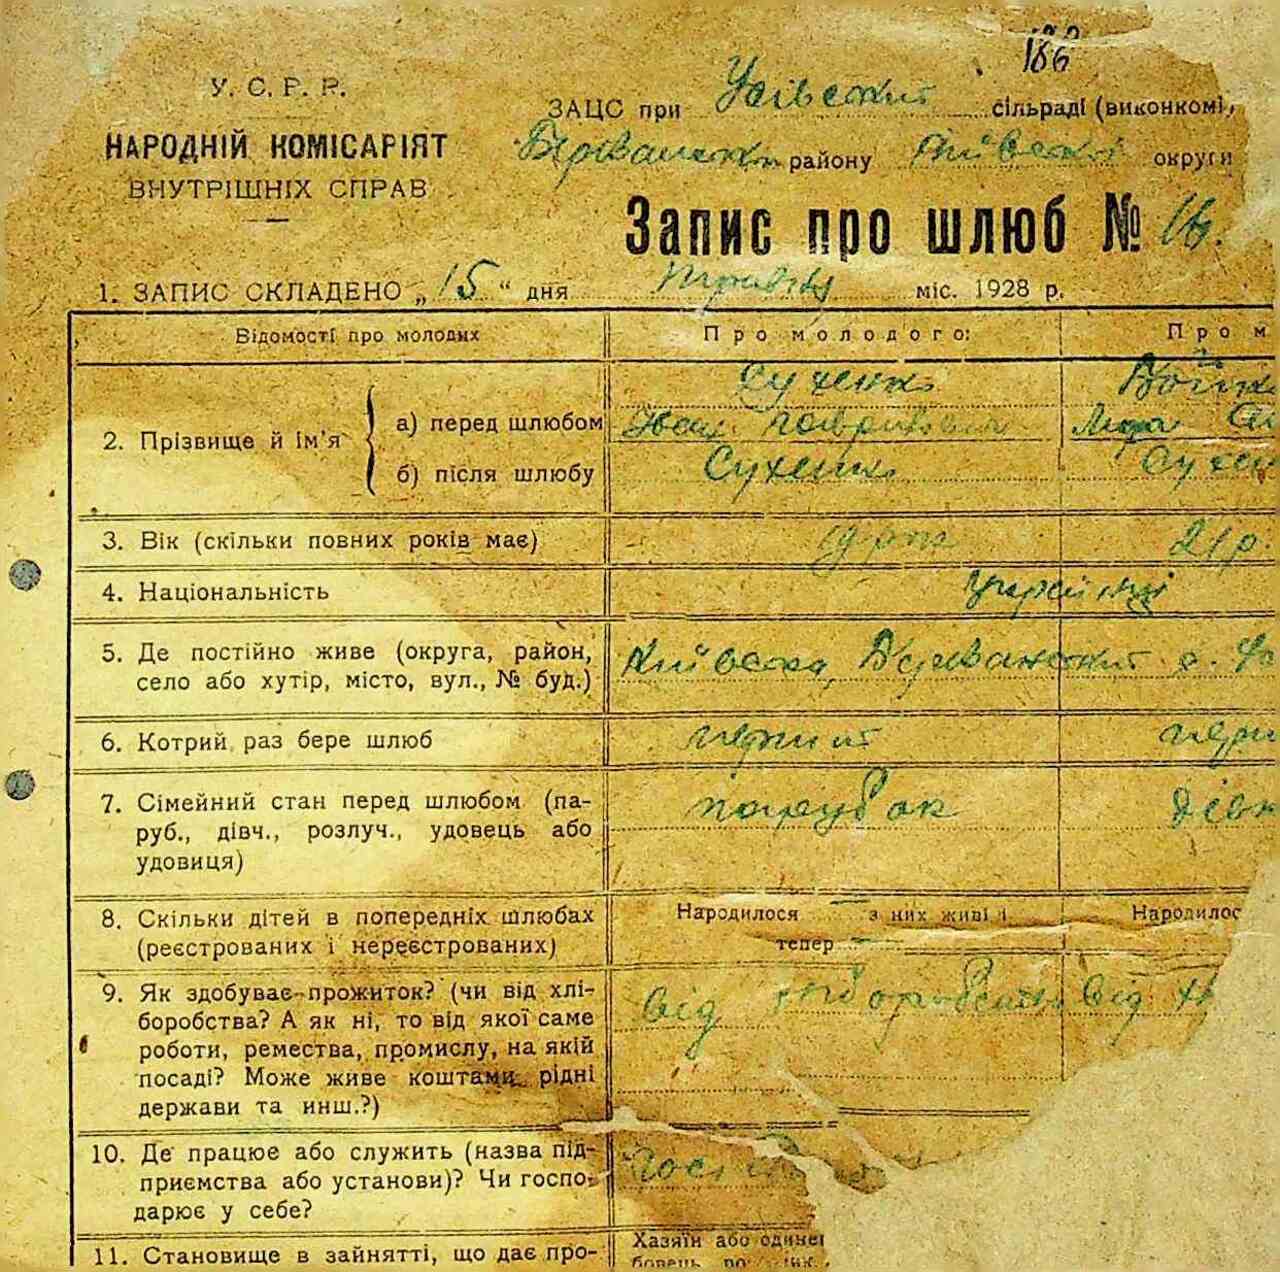 186
У. С. Р. Р.
НАРОДНІЙ КОМІСАРІЯТ
ВНУТРІШНІХ СПРАВ
ЗАЦС при сільраді (виконкомі)
району Київської округи
Запис про шлюб № 16.
1. ЗАПИС СКЛАДЕНО „15“ дня травня міс. 1928 р.
Відомості про молодих
Про молодого:
Про м
2. Прізвище й ім'я
а) перед шлюбом
Сухенко
Іван
б) після шлюбу
Сухенко
3. Вік (скільки повних років має)
19 рок
21 р.
4. Національність
Українці
5. Де постійно живе (округа, район,
село або хутір, місто, вул., № буд.)
Київська, с.
6. Котрий раз бере шлюб
перший
пер
7. Сімейний стан перед шлюбом (па-
руб., дівч., розлуч., удовець або
удовиця)
парубок
дівч
8. Скільки дітей в попередніх шлюбах
(реєстрованих і нереєстрованих)
Народилося — з них живі і
тепер —
Народилос
9. Як здобуває прожиток? (чи від хлі-
боробства? А як ні, то від якої саме
роботи, ремества, промислу, на якій
посаді? Може живе коштами рідні
держави та инш.?)
від хліборобства
від х
10. Де працює або служить (назва під-
приємства або установи)? Чи госпо-
дарює у себе?
11. Становище в зайнятті, що дає про-
Хазяїн або одинец